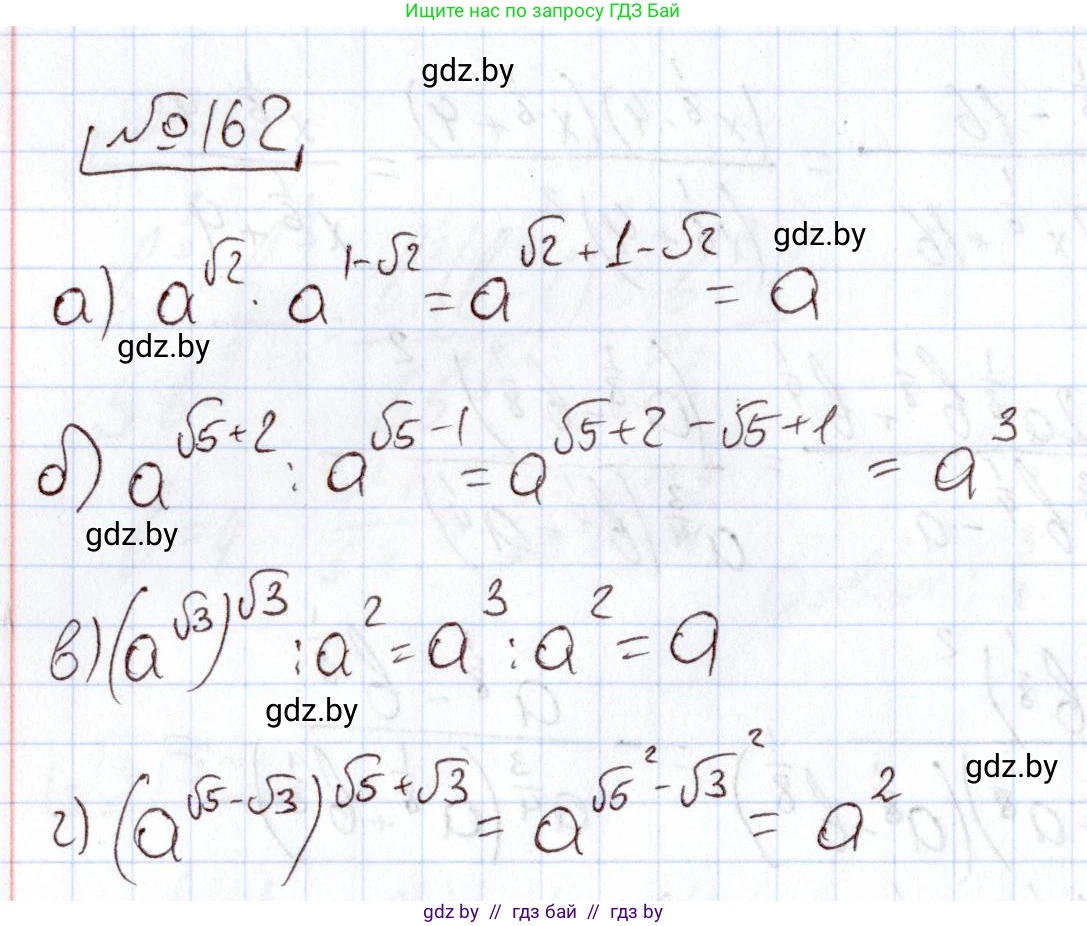 Ищите нас по запросу ГДЗ Бай
gdz.by
№162
а) a^√2 · a^(1-√2) = a^(√2+1-√2) = a
gdz.by
gdz.by
б) a^(√5+2) : a^(√5-1) = a^(√5+2-√5+1) = a^3
gdz.by
в) (a^√3)^√3 : a^2 = a^3 : a^2 = a
gdz.by
gdz.by
г) (a^(√5-√3))^(√5+√3) = a^(√5^2-√3^2) = a^2
gdz.by // гдз бай // гдз by